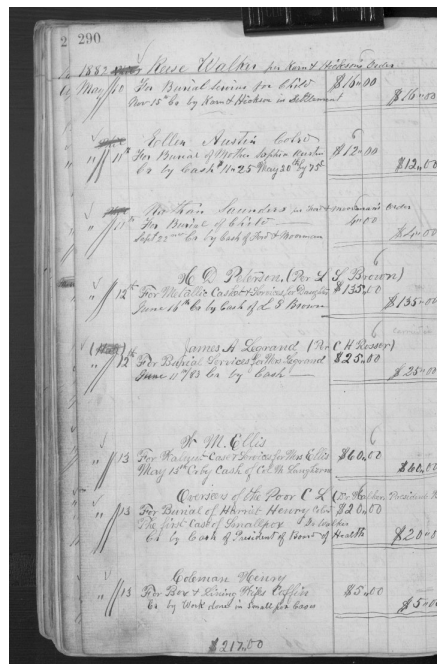 2 290
1882 Reese Walker per Kern & Hickson's Order
May 10 For Burial Services for Child $16.00
Nov 15th Cr by Kern & Hickson in Settlement $16.00
Austin Cold 6
" 11th For Burial of Mother Sophia Austin $12.00
Cr by Cash $11.25 May 30th by 75¢ $12.00
Nathan Saunders Order
" 11th For Burial of Child 4.00
Sept 22nd Cr by Cash of Ford & $4.00
6
H. D. Peterson (Per L. S. Brown)
" 12th For Metallic Casket & Services for Daughter $135.00
June 16th Cr by Cash of L S Brown $135.00
6
James H Legrand (Per C H Rosser)
" 12th For Burial Services for Mrs Legrand $25.00
June 11th/83 Cr by Cash $25.00
M. Ellis 6
" 13 For Walnut Case & Services for Mrs Ellis $60.00
May 15th Cr by Cash of Col. M. Langhorne $60.00
Overseer of the Poor C L (Dr Walker, President
" 13 For Burial of Harriet Henry Cold $20.00
The first Case of Smallpox Dr Walker
Cr by Cash of President of Board of Health $20.00
Coleman Henry
" 13 For Box & Lining Wife's Coffin $5.00
Cr by Work done in Small pox Cases $5.00
$217.00